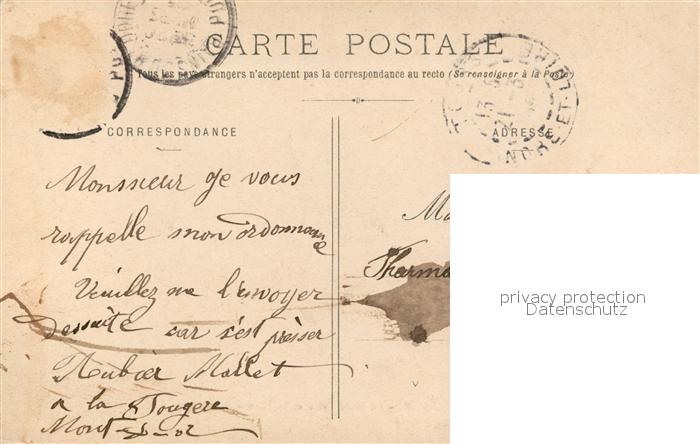 CARTE POSTALE
Tous les pays étrangers n'acceptent pas la correspondance au recto (Se renseigner à la Poste)
CORRESPONDANCE
ADRESSE
LOIRE
Monssieur je vous
rappelle mon ordonnance
Veuillez me l'envoyer
dessuite car s'est présser
Mallet
a la Fougere
privacy protection
Datenschutz